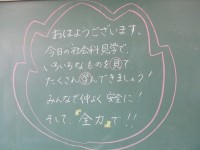 おはようございます。
今日の社会科見学で、
いろいろなものを見て
たくさん学んできましょう！
みんなで仲よく安全に！
そして、"全力"で!!